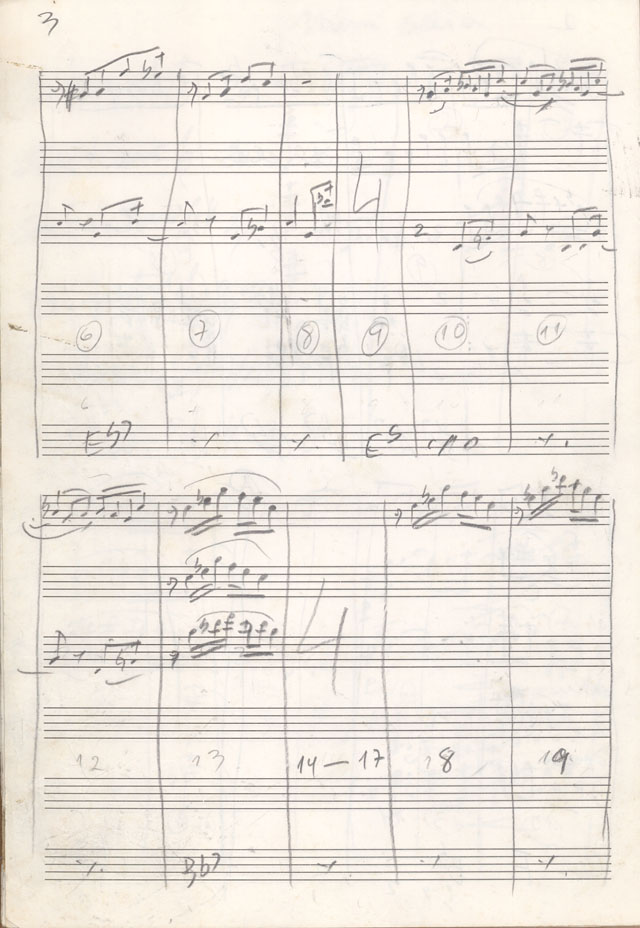 3
2
4
6 7 8 9 10 11
Eb7 ٪ ٪
4
12 13 14 — 17 18 19
٪ Bb7 ٪ ٪ ٪